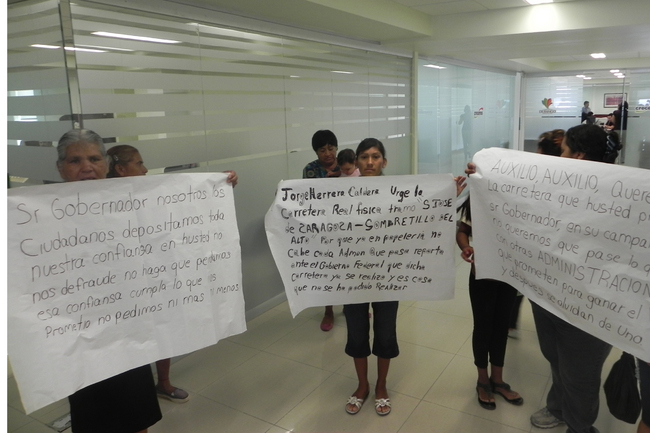 Sr Gobernador nosotros los
Ciudadanos depositamos toda
nuestra confianza en husted no
nos defraude no haga que perdamos
esa confiansa cumpla lo que
Prometio no pedimos ni mas ni menos
Jorge Herrera Caldera Urge la
Carretera Real fisica tramo SJOSE
de ZARAGOZA-SOMBRETILLO DEL
ALTO Por que ya en papeleria no
Cabe cada Admon que pasa reporta
ante el Gobierno Federal que dicha
Carretera ya se realizo y es cosa
que no se ha podido Realizar
AUXILIO, AUXILIO, Quere
La carretera que husted po
sr Gobernador en su campa
no queremos que pase lo q
con otras ADMINISTRACION
que prometen para ganar el
y despues se olvidan de Uno